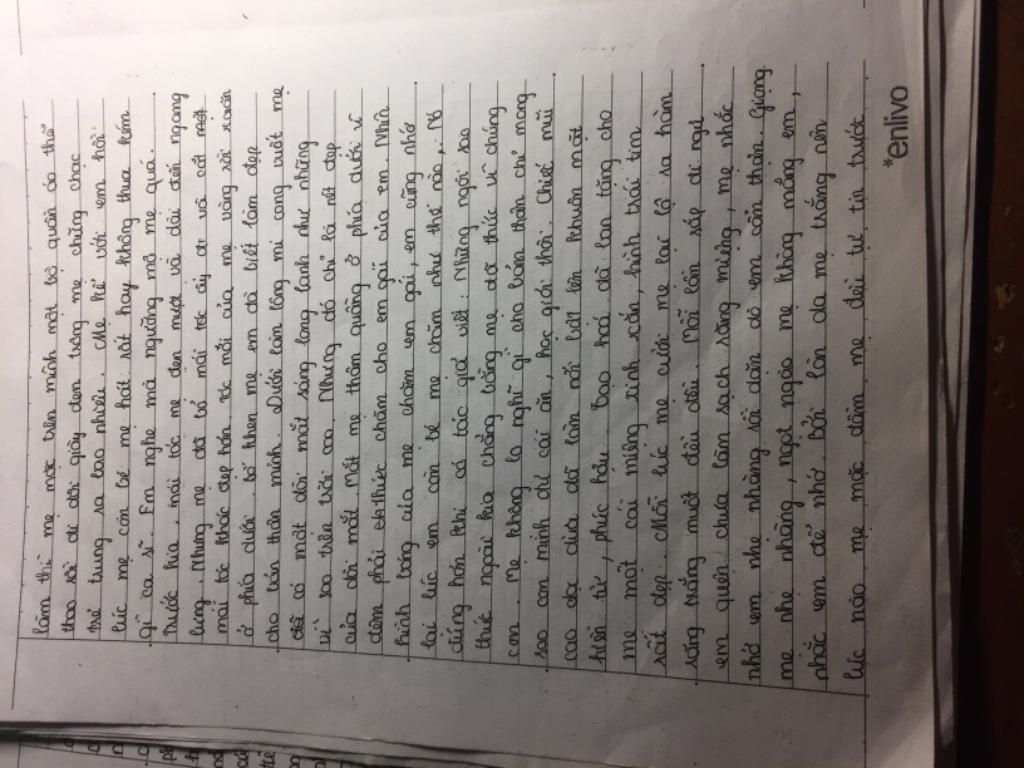 làm thì mẹ mặc trên mình một bộ quần áo thể
thao rồi đi đôi giày đen trông mẹ chững chạc
trẻ trung ra bao nhiêu. Mẹ kể với em hồi
lúc mẹ còn bé mẹ hát rất hay không thua kém
gì ca sĩ Em nghe mà ngưỡng mộ mẹ quá.
Trước kia, mái tóc mẹ đen mượt và dài đến ngang
lưng. Nhưng mẹ đã bỏ mái tóc ấy đi và cắt một
mái tóc khác đẹp hơn, tóc mới của mẹ vàng rồi xoăn
ở phía dưới. bố khen mẹ em đã biết làm đẹp
cho bản thân mình. Dưới làn lông mi cong vuốt mẹ
để có một đôi mắt sáng long lanh như những
vì sao trên trời cao. Nhưng đó chỉ là nét đẹp
của đôi mắt. Mắt mẹ thâm quầng ở phía dưới vì
đêm phải thức chăm cho em gái của em. Nhìn
hình bóng của mẹ chăm em gái, em cũng nhớ
lại lúc em còn bé mẹ chăm như thế nào,. Nó
đúng hơn khi có tác giả viết: Những ngôi sao
thức ngoài kia chẳng bằng mẹ đã thức vì chúng
con. Mẹ không lo nghĩ gì cho bản thân chỉ mong
sao con mình đủ cái ăn, học giỏi thôi. Chiếc mũi
cao dọc dừa đã làm nổi bật lên khuôn mặt
hiền từ, phúc hậu. Tạo hoá đã ban tặng cho
mẹ một cái miệng xinh xắn, hình trái tim
rất đẹp. Mỗi lúc mẹ cười mẹ lại lộ ra hàm
răng trắng muốt đều đều. Mỗi lần sắp đi ngủ
em quên chưa làm sạch răng miệng, mẹ nhắc
nhở em nhẹ nhàng rồi dặn dò em cẩn thận. Giọng
mẹ nhẹ nhàng, ngọt ngào mẹ không mắng em,
nhắc em để nhớ. Bởi làn da mẹ trắng nên
lúc nào mẹ mặc đầm mẹ đều tự tin trước
*enlivo